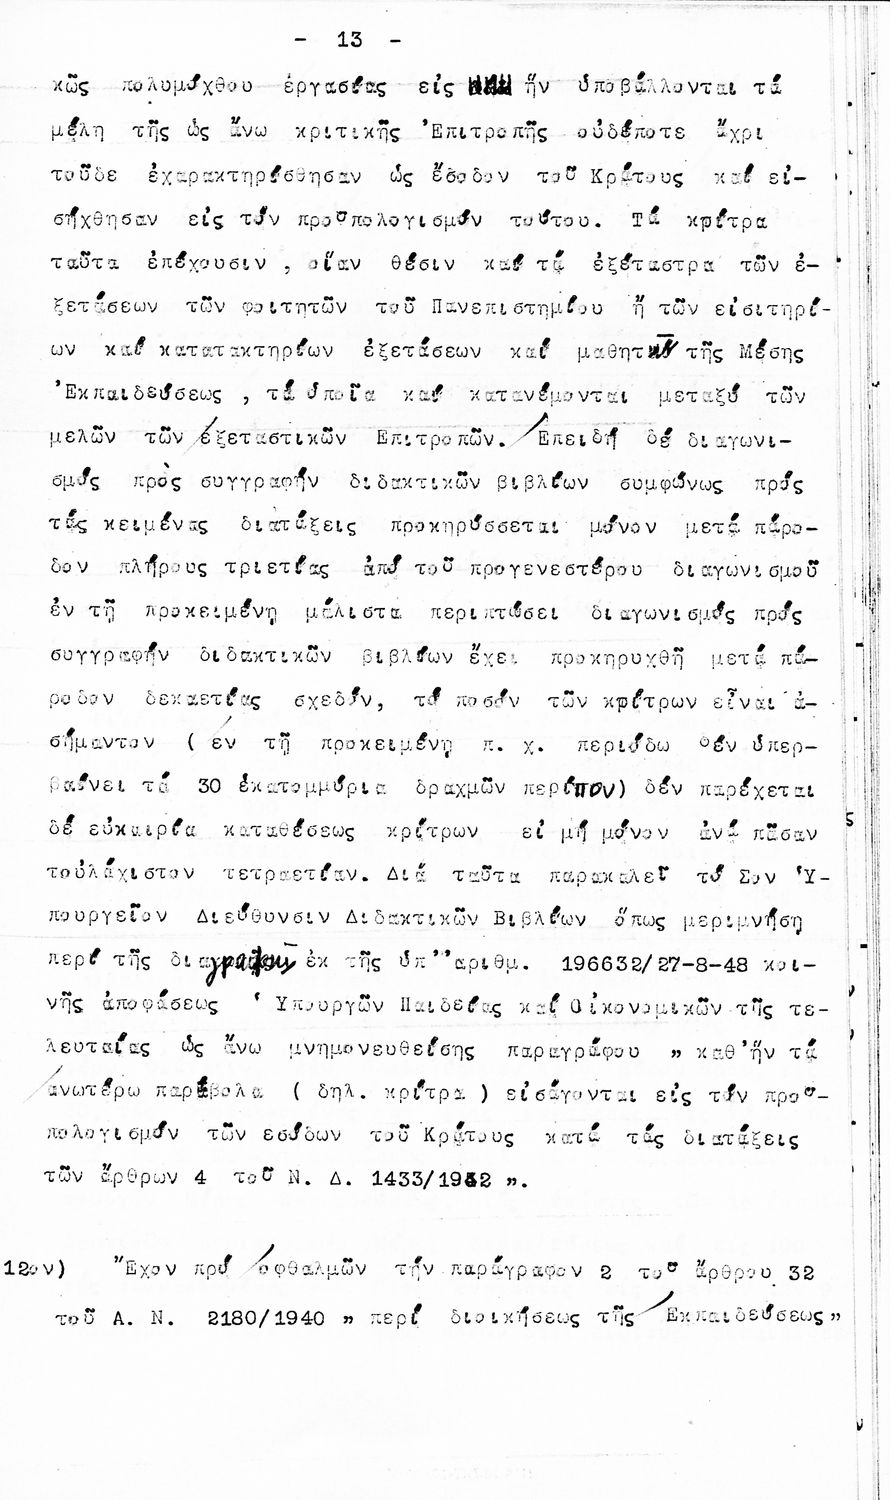 - 13 -
κῶς πολυμόχθου ἐργασίας εἰς ἥν ὑποβάλλονται τά
μέλη τῆς ὡς ἄνω κριτικῆς Ἐπιτροπῆς οὐδέποτε ἄχρι
τοῦδε ἐχαρακτηρίσθησαν ὡς ἔσοδον τοῦ Κράτους καί εἰ-
σήχθησαν εἰς τόν προϋπολογισμόν τούτου. Τά κρίτρα
ταῦτα ἐπέχουσιν , οἵαν θέσιν καί τά ἐξέταστρα τῶν ἐ-
ξετάσεων τῶν φοιτητῶν τοῦ Πανεπιστημίου ἤ τῶν εἰσιτηρί-
ων καί κατατακτηρίων ἐξετάσεων καί μαθητῶν τῆς Μέσης
Ἐκπαιδεύσεως , τά ὁποῖα καί κατανέμονται μεταξύ τῶν
μελῶν τῶν ἐξεταστικῶν Ἐπιτροπῶν. Ἐπειδή δέ διαγωνι-
σμός πρὸς συγγραφήν διδακτικῶν βιβλίων συμφώνως πρός
τάς κειμένας διατάξεις προκηρύσσεται μόνον μετά πάρο-
δον πλήρους τριετίας ἀπό τοῦ προγενεστέρου διαγωνισμοῦ
ἐν τῇ προκειμένῃ μάλιστα περιπτώσει διαγωνισμός πρός
συγγραφήν διδακτικῶν βιβλίων ἔχει προκηρυχθῆ μετά πά-
ροδον δεκαετίας σχεδόν, τό ποσόν τῶν κρίτρων εἶναι ἀ-
σήμαντον ( ἐν τῇ προκειμένῃ π. χ. περιόδω δέν ὑπερ-
βαίνει τά 30 ἑκατομμύρια δραχμῶν περίπου) δέν παρέχεται
δέ εὐκαιρία καταθέσεως κρίτρων εἰ μή μόνον ἀνά πᾶσαν
τοὐλάχιστον τετραετίαν. Διά ταῦτα παρακαλεῖ τό Σον Ὑ-
πουργεῖον Διεύθυνσιν Διδακτικῶν Βιβλίων ὅπως μεριμνήσῃ
περί τῆς διαγραφῆς ἐκ τῆς ὑπ''αριθμ. 196632/27-8-48 κοι-
νῆς ἀποφάσεως Ὑπουργῶν Παιδείας καί Οἰκονομικῶν τῆς τε-
λευταίας ὡς ἄνω μνημονευθείσης παραγράφου " καθ'ἥν τά
ἀνωτέρω παράβολα ( δηλ. κρίτρα ) εἰσάγονται εἰς τόν προϋ-
πολογισμόν τῶν εσόδων τοῦ Κράτους κατά τάς διατάξεις
τῶν ἄρθρων 4 τοῦ Ν. Δ. 1433/1942 ".
12ον) Ἔχον πρό ὀφθαλμῶν τήν παράγραφον 2 τοῦ ἄρθρου 32
τοῦ Α. Ν. 2180/1940 " περί διοικήσεως τῆς Ἐκπαιδεύσεως"